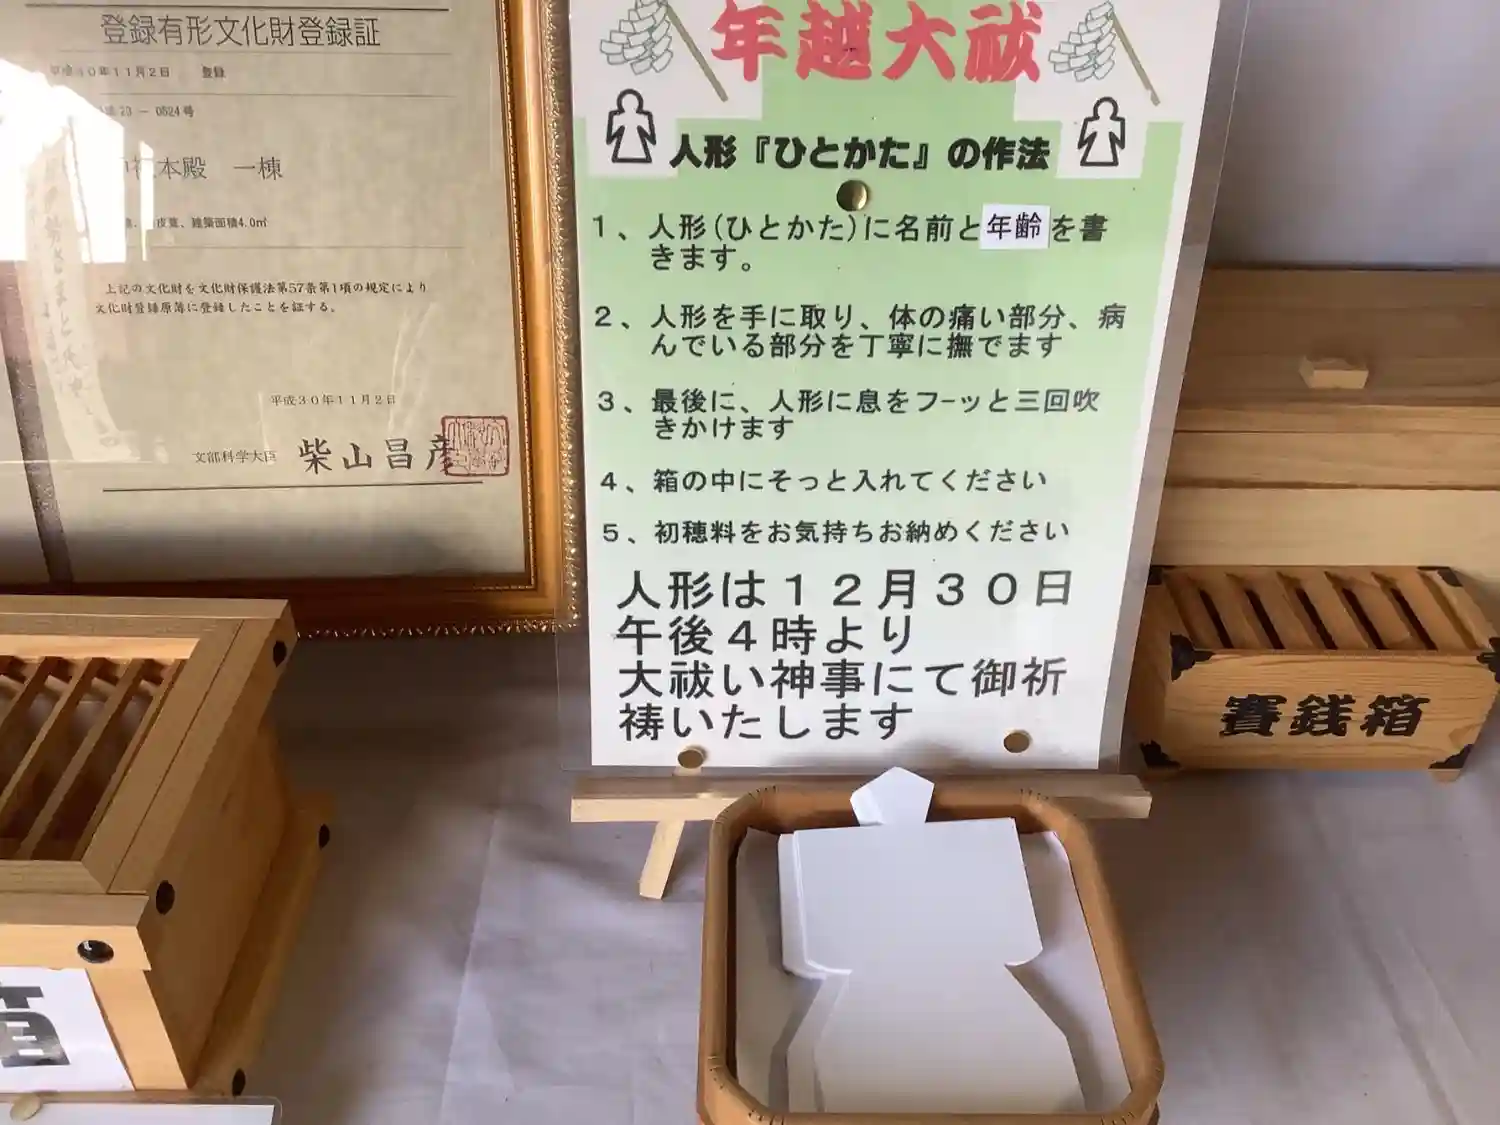 登録有形文化財登録証
平成30年11月2日 登録
23 － 0524号
本殿 一棟
建築面積4.0㎡
上記の文化財を文化財保護法第57条第1項の規定により
文化財登録原簿に登録したことを証する。
平成30年11月2日
文部科学大臣 柴山昌彦
年越大祓
人形『ひとかた』の作法
1、人形(ひとかた)に名前と年齢を書
きます。
2、人形を手に取り、体の痛い部分、病
んでいる部分を丁寧に撫でます
3、最後に、人形に息をフーッと三回吹
きかけます
4、箱の中にそっと入れてください
5、初穂料をお気持ちお納めください
人形は12月30日
午後4時より
大祓い神事にて御祈
祷いたします
賽銭箱